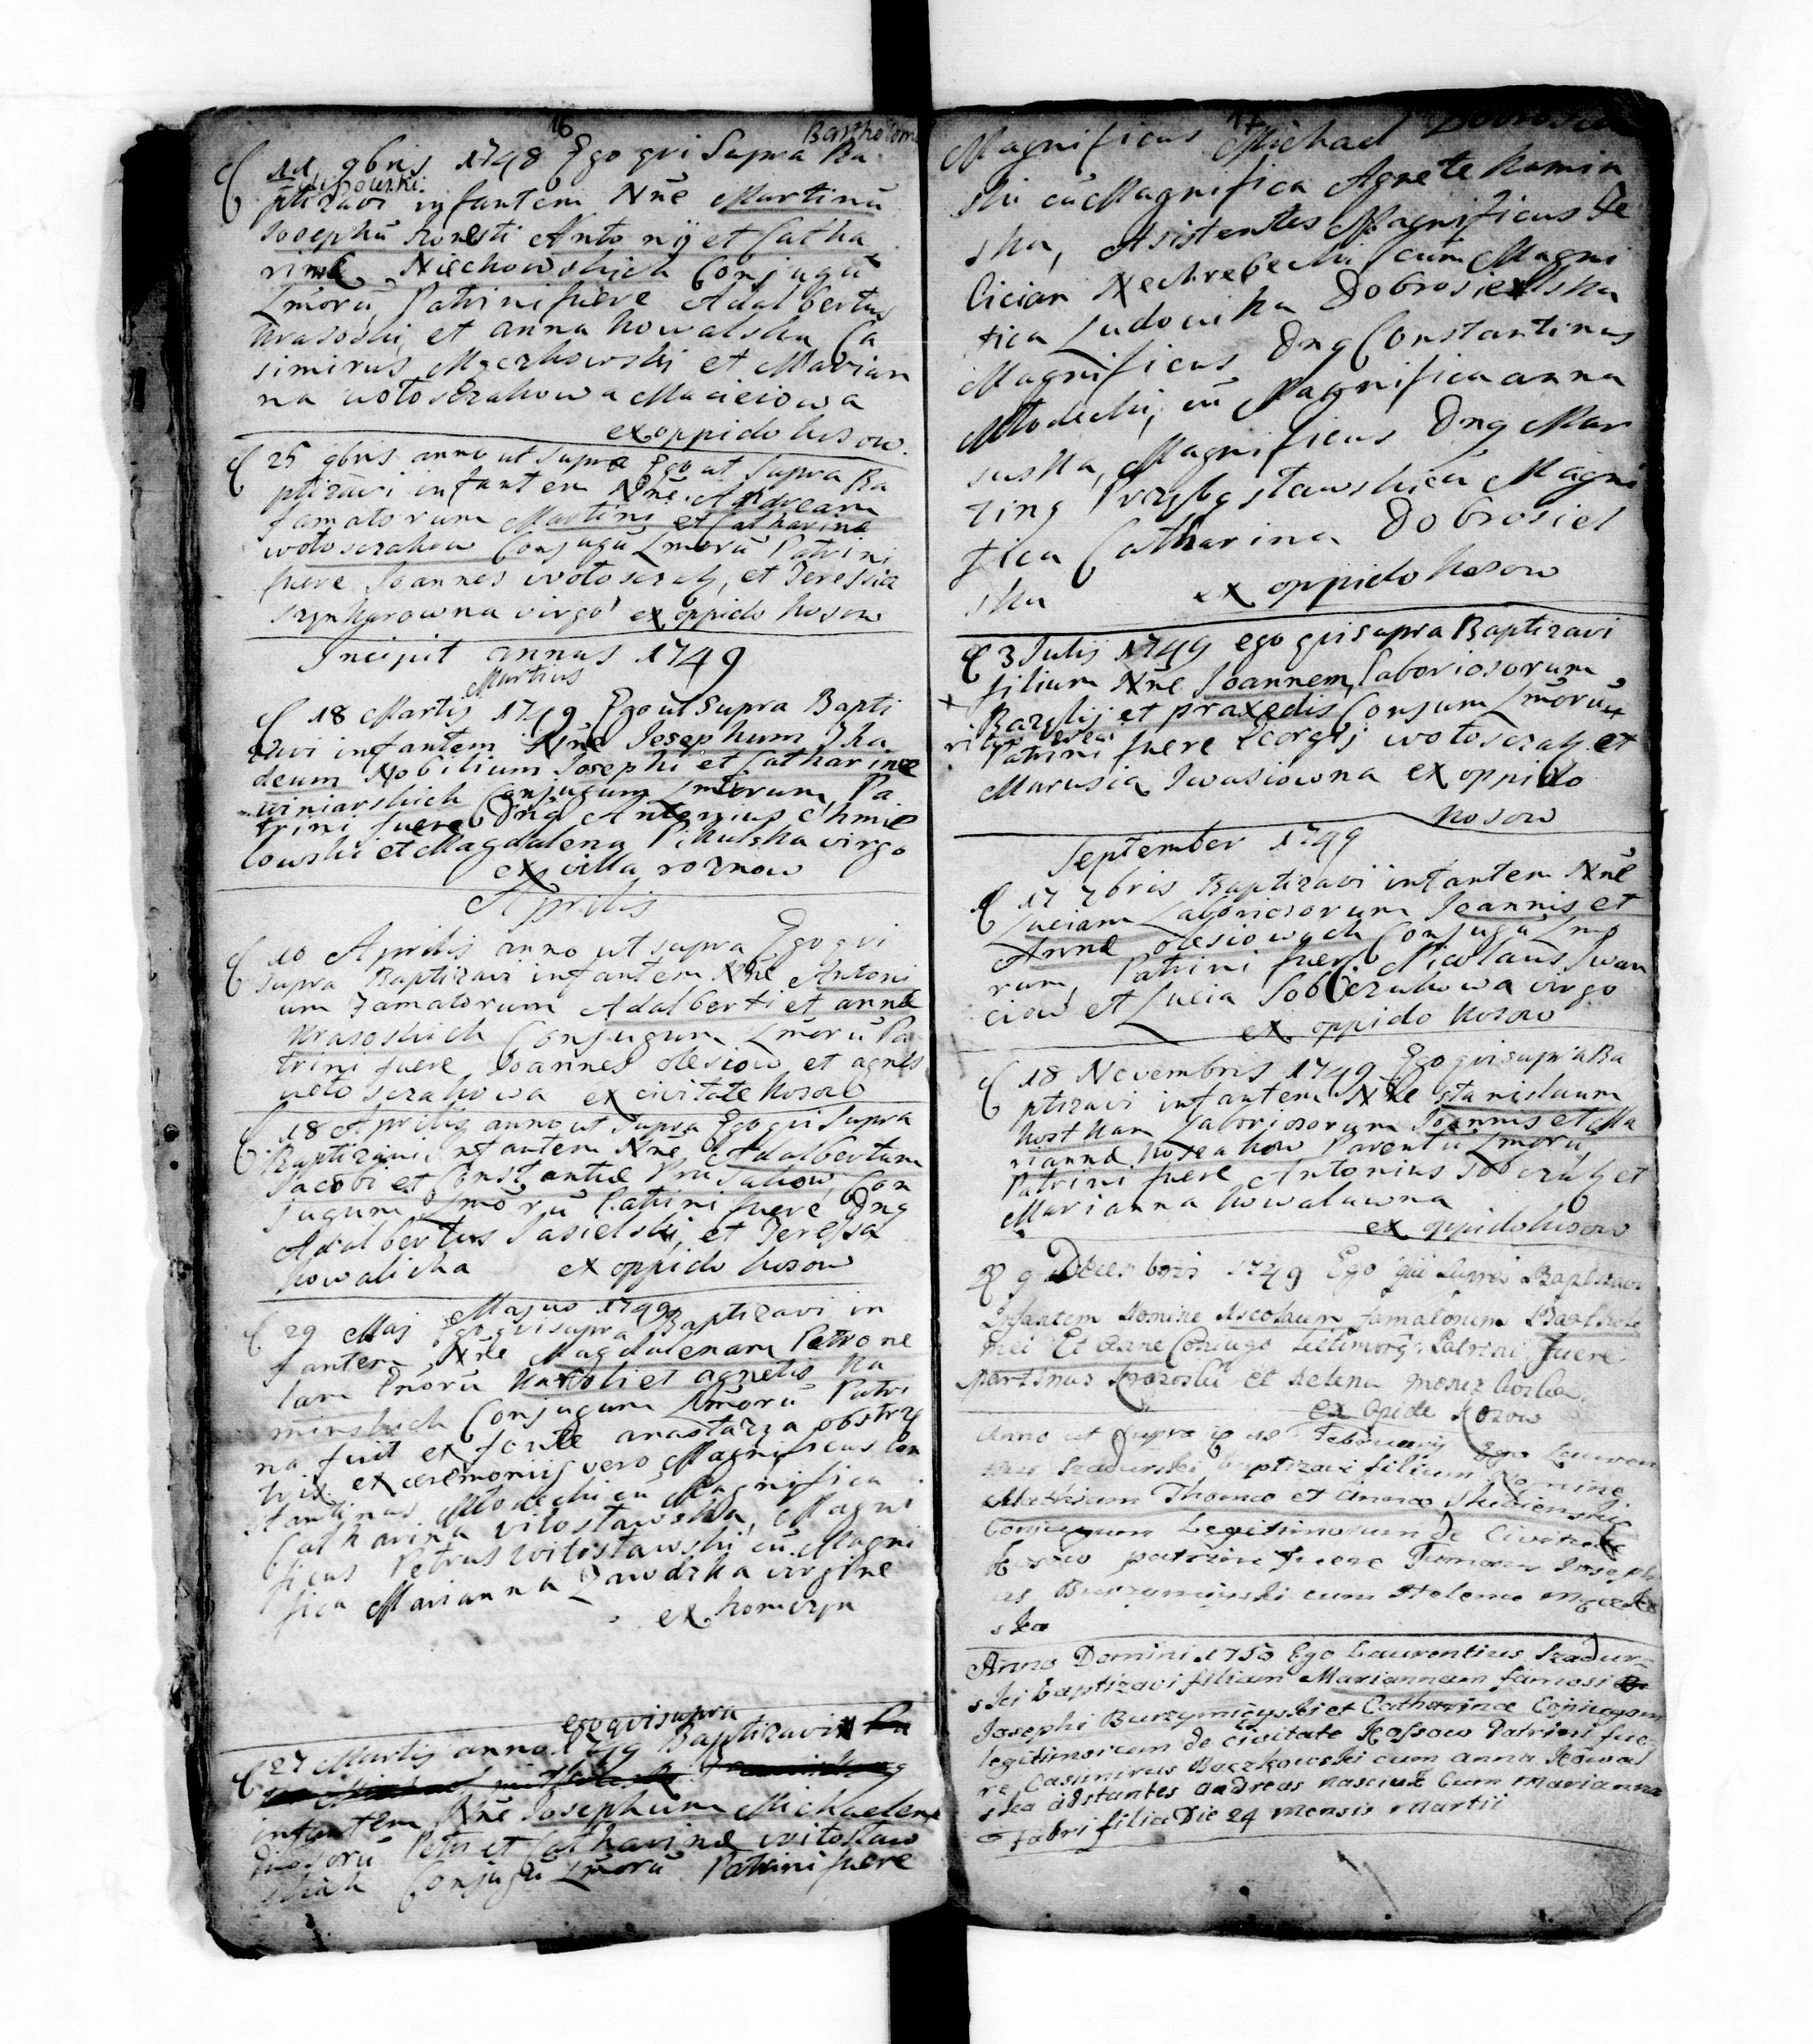 16
Bartholom
11 9bris 1748 Ego qui Supra Ba
ptizavi infantem Nñe Martinũ
Josephũ honesti Antonij et Catha
rinæ Niechowskich Conjugũ
Lmorũ Patrini fuere Adalbertus
Krasoski, et anna Kowalska Ca
simirus Mączkowski et Marian
na wołosczakowa Macieiowa
ex oppido kosow.
25 9bris anno ut supra Ego ut Supra Ba
ptizavi infantem Nñe Andream
famatorum Martini et Catharinæ
wołosczakow Conjugũ Lmorũ Patrini
fuere Joannes wołosczak, et Teressia
virgo ex oppido kosow
Incipit annus 1749
Martius
18 Martij 1749 Ego ut Supra Bapti
zavi infantem Nñe Josephum Tha
deum Nobilium Josephi et Catharinæ
winiarskich Conjugum Lmorum Pa
trini fuere Dnẽ Antonius Chmie
lowski et Magdalena Pikulska virgo
ex villa roznow
Aprilis
10 Aprilis anno ut supra Ego qui
supra Baptizavi infantem Nñe Antoni
um famatorum Adalberti et annæ
Krasoskich Conjugum Lmorũ Pa
trini fuere Joannes olesiow et agnes
woło sczakowa ex civitate kosow
18 Aprilis anno ut Supra Ego qui Supra
Baptizavi infantem Nñe Adalbertum
Jacobi et Constantiæ Con
jugum Lmorũ Patrini fuere Dnq
Adalbertus Jasielski, et Teressa
kowalicha ex oppido kosow
Majus 1749
29 Maj Ego qui supra Baptizavi in
fantem Nñe Magdalenam Petrone
lam Dnorũ et agnetis Ka
minskich Conjugum Lmorũ Patri
na fuit ex fonte anastazya obstrzy
trix ex ceremonijs vero Magnificus Con
stantinus Młodecki cũ Magnifica
Catharina witosławska, Magni
ficus Petrus witosławski cũ Magni
fica Marianna Zawadzka virgine
ex
ego qui supra
27 Martij anno 1749 Baptizavi
infantem Nñe Josephum Michaelem
Petri et Catharinæ witosław
skich Conjugũ Lmorũ Patrini fuere
17
Magnificus Michael
ski cũ Magnifica Agnete Kamin
ska, Asistentes Magnificus Fe
lician Nechrebecki cum Magni
fica Ludowika Dobrosielska
Magnificus Dnq Constantinus
Młodecki, cũ Magnifica anna
Magnificus Dnq Mar
tinq Przybysławski cũ Magni
fica Catharina Dobrosiel
ska ex oppido kosow
3 Julij 1749 ego qui supra Baptizavi
filium Nñe Joannem, laboriosorum
Bazylij et praxedis Conjum Lmorũ
Patrini fuere Georgij wołosczak et
Marusia Iwasiowna ex oppido
kosow
September 1749
17 7bris Baptizavi infantem Nñe
Luciam Laboriosorum Joannis et
Annæ olesiowich Conjugũ Lmo
rum, Patrini fuere Nicolaus Iwan
ciow et Lucia Sobczukowa virgo
ex oppido kosow
18 Novembris 1749 Ego qui supra Ba
ptizavi infantem Nñe Stanislaum
kostkam Laboriosorum Joannis et Ma
riannæ Parentũ Lmorũ
Patrini fuere Antonius sobczuk et
Marianna kowalowna
ex oppido kosow
9 Decembris 1749 Ego qui supra Baptizavi
Infantem Nomine Nicolaum famatorum Bartholo
mei Et Anne Coniugo Lectimorũ Patrini fuere
Martinus Krazoski et Helena
ex Opido Kosow
Anno ut supra 18 February Ego Lauren
tius Szadurski baptizavi filium Nomine
Mathiam Thomæ et Annæ
Coniugum Legitimorum de Civitate
Kosow patrini fuere Famatus Joseph
us Burzyminski cum Helena
ska
Anno Domini 1750 Ego Laurentius Szadur=
ski baptizavi filiam Mariannam famosi
Josephi Burzymiński et Catharinæ Coniugum
legitimorum de civitate Kossow Patrini fue
re Casimirus Bączkowski cum anna Kowal
ska adstantes andreas Nasciuk cum Marianna
fabri filia Die 24 mensis Martii